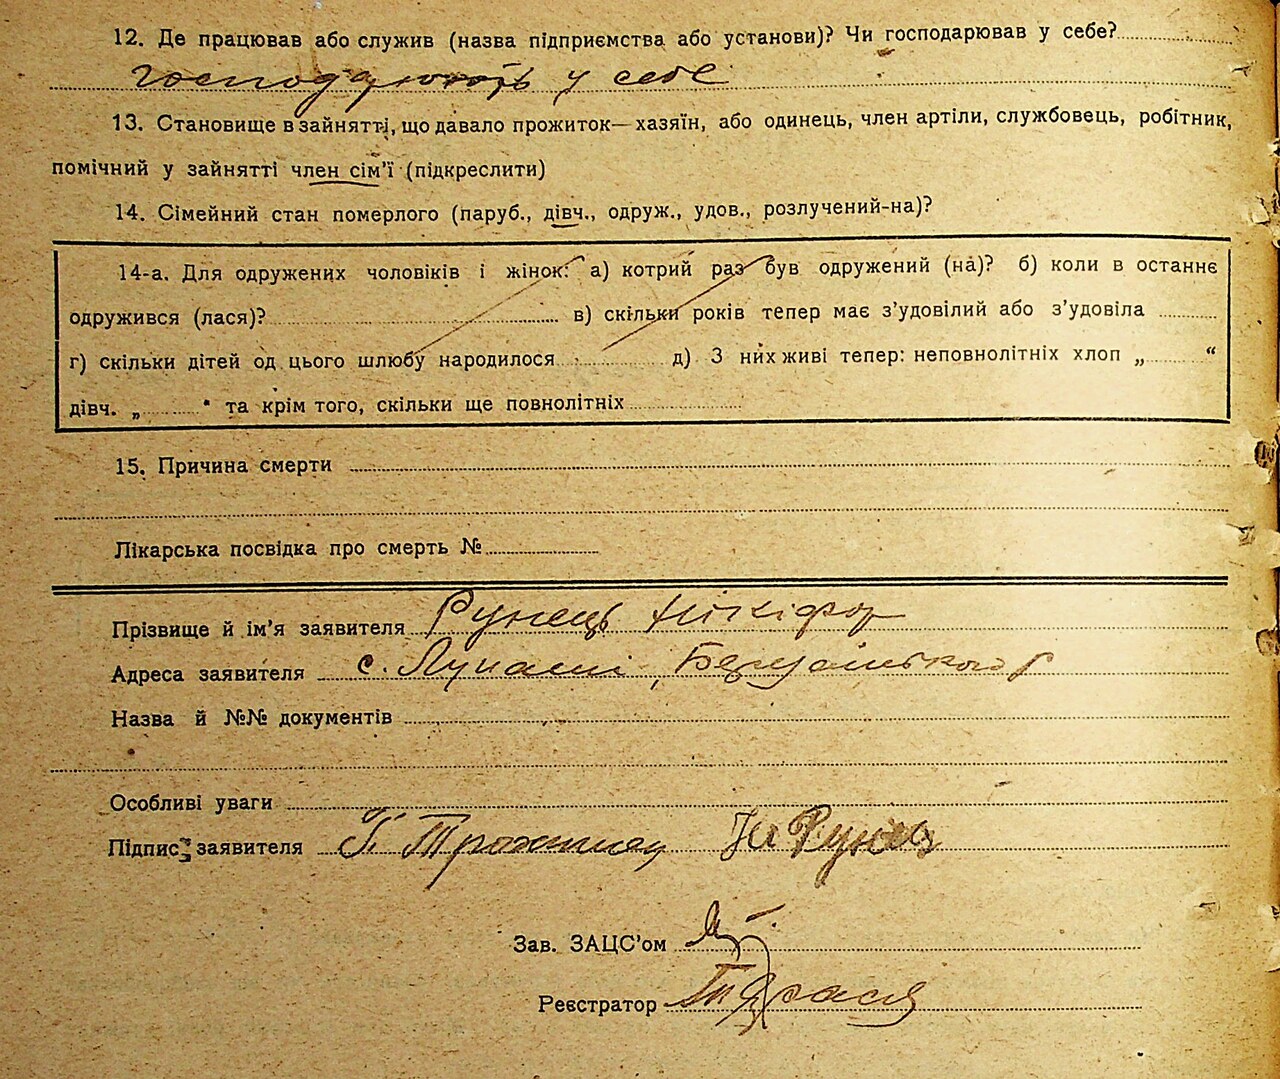 12. Де працював або служив (назва підприємства або установи)? Чи господарював у себе?
господарюють у себе
13. Становище в зайнятті, що давало прожиток—хазяїн, або одинець, член артіли, службовець, робітник,
помічний у зайнятті член сім'ї (підкреслити)
14. Сімейний стан померлого (паруб., дівч., одруж., удов., розлучений-на)?
14-а. Для одружених чоловіків і жінок: а) котрий раз був одружений (на)? б) коли в останнє
одружився (лася)? в) скільки років тепер має з'удовілий або з'удовіла
г) скільки дітей од цього шлюбу народилося д) З них живі тепер: неповнолітніх хлоп „ “
дівч. „ “ та крім того, скільки ще повнолітніх
15. Причина смерти
Лікарська посвідка про смерть №
Прізвище й ім'я заявителя Рунець Нікіфор
Адреса заявителя с. Лупаші, Березанського р
Назва й №№ документів
Особливі уваги
Підпис заявителя Н Рунец
Зав. ЗАЦС'ом
Реєстратор